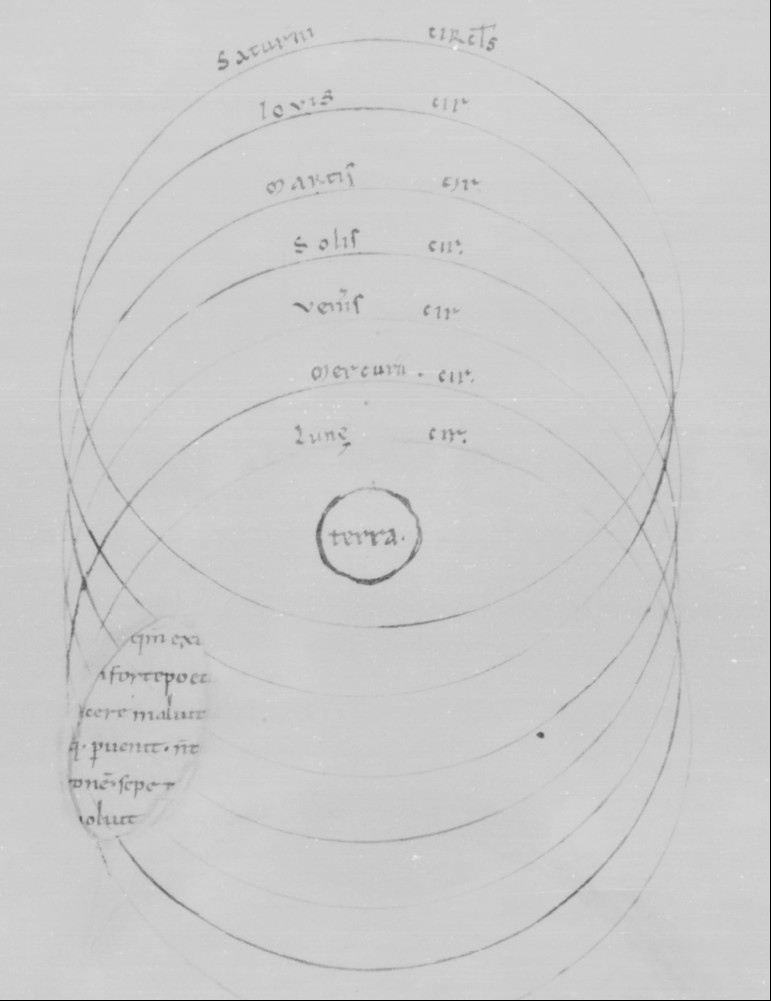 Saturni circl̄s
Iovis cir
Martis cir
Solis cir.
Ven̄is cir
Mercurii . cir.
Lunę cir.
terra.
qm̄ exi
forte poet
cere maluit
q̄. puenit . n̄t
onē. sepe
oluit